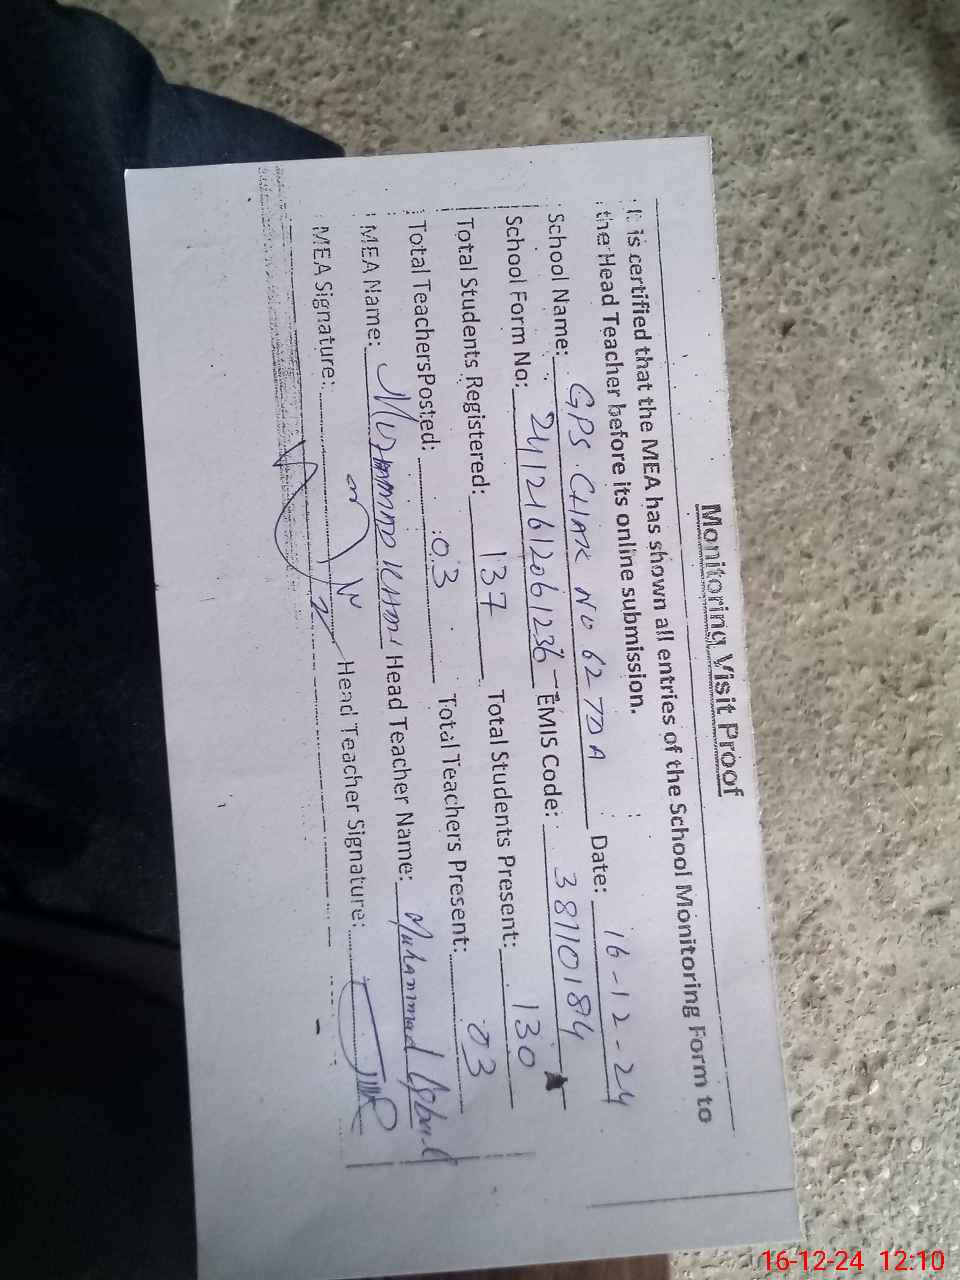 Monitoring Visit Proof
It is certified that the MEA has shown all entries of the School Monitoring Form to
the Head Teacher before its online submission.
School Name: GPS CHAK NO 62 TDA Date: 16-12-24
School Form No: EMIS Code: 38110184
Total Students Registered: 137 Total Students Present: 130
Total TeachersPosted: 03 Total Teachers Present: 03
MEA Name: Head Teacher Name: Muhammad
MEA Signature: Head Teacher Signature:
16-12-24 12:10